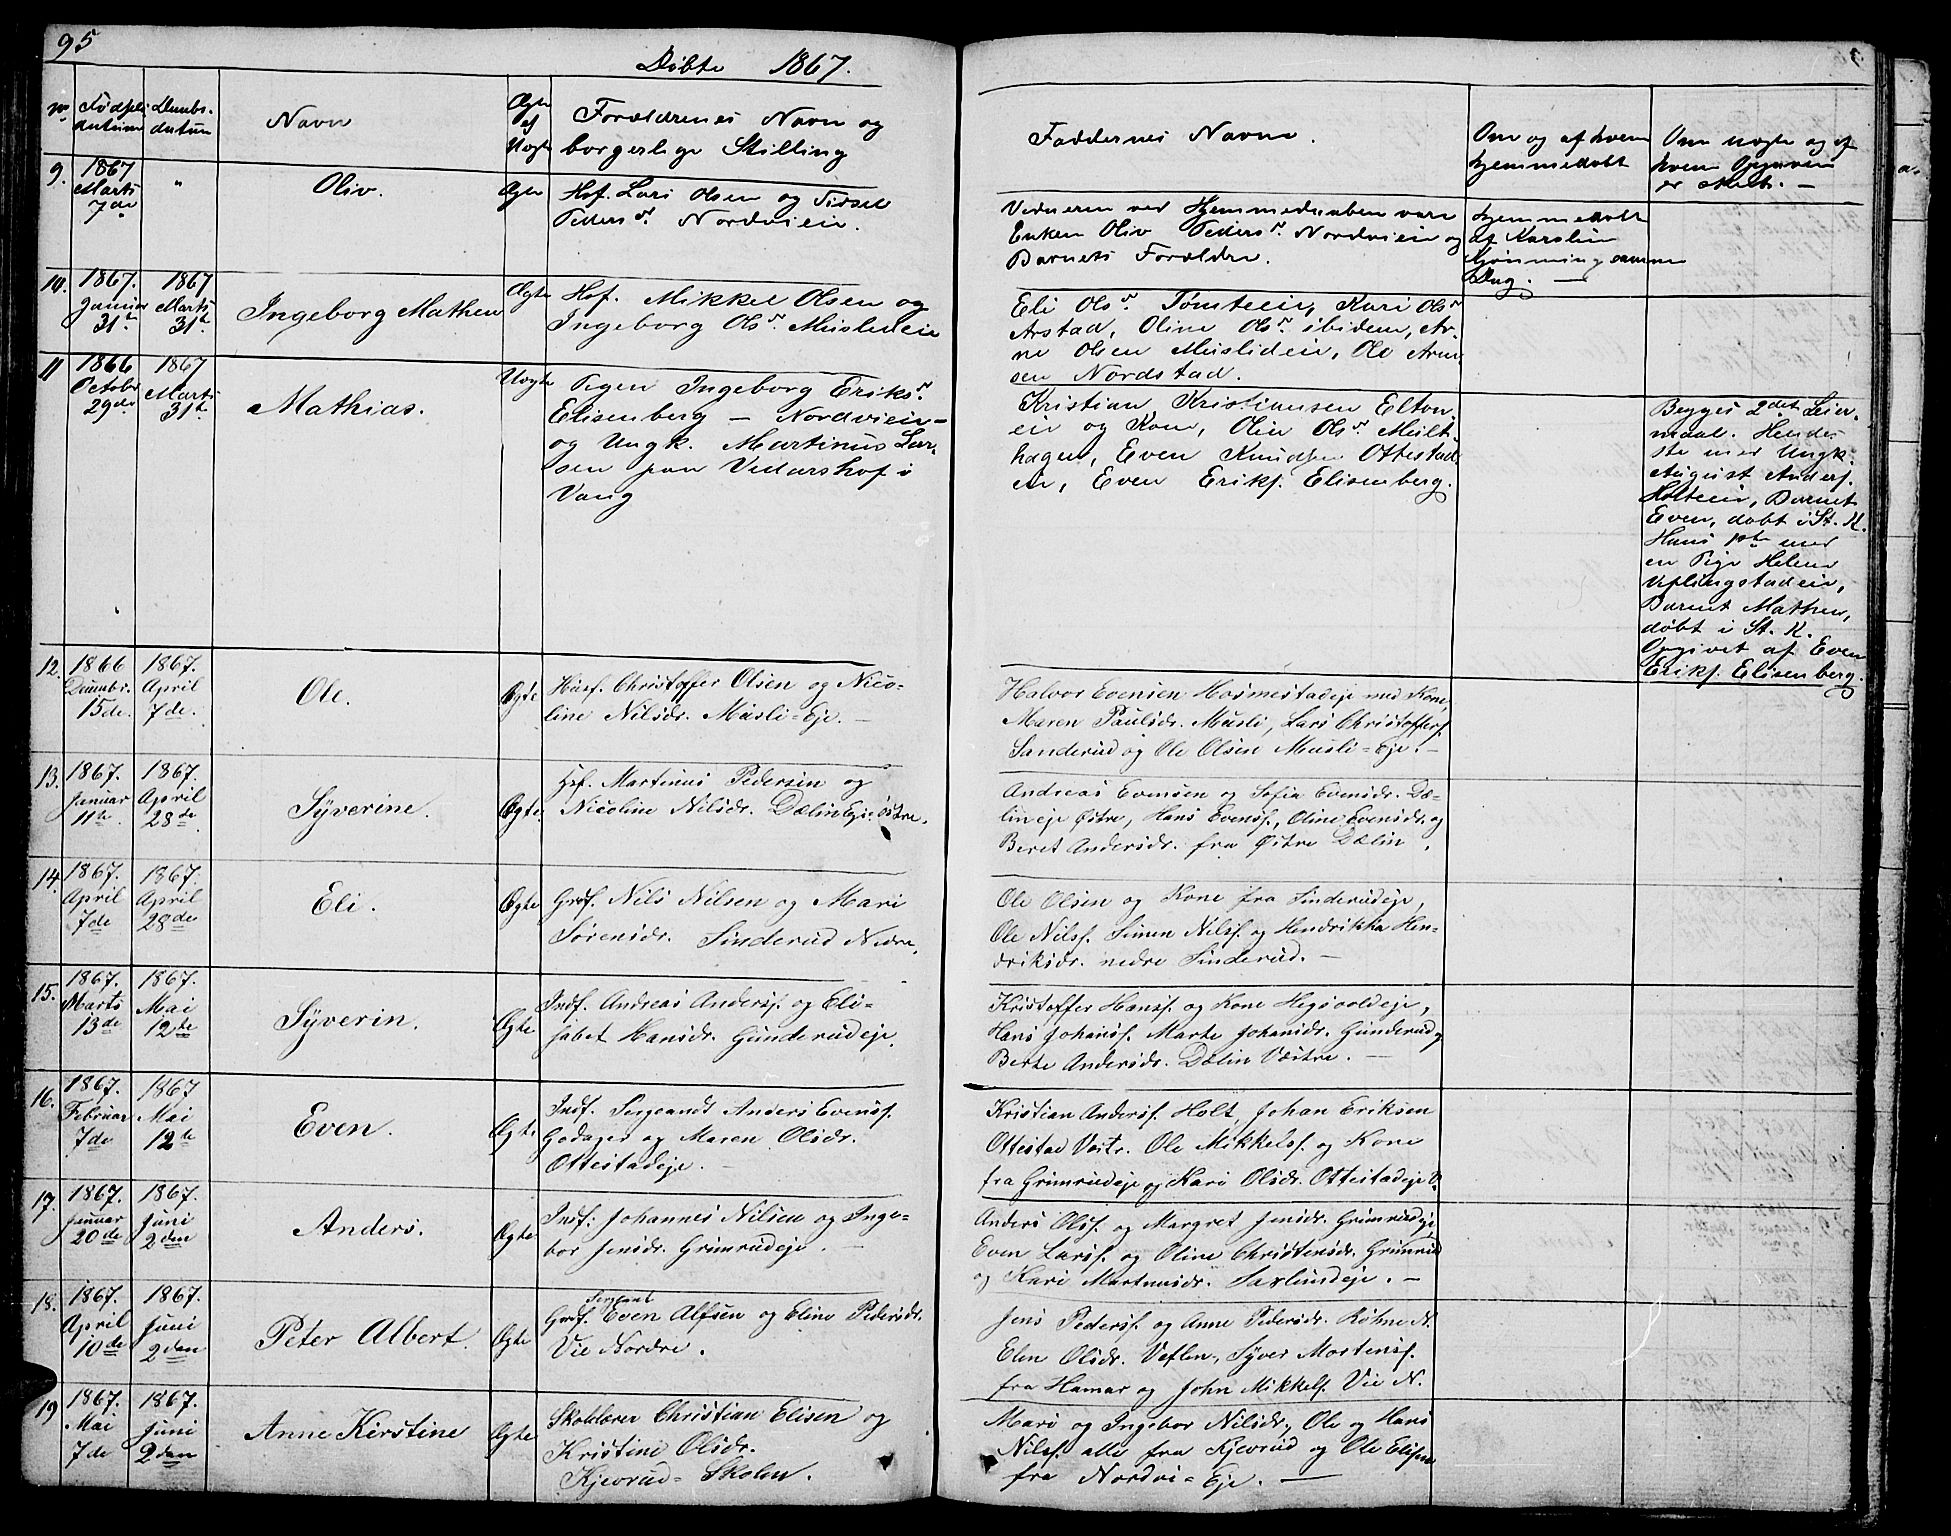 95
Døbte 1867.
No Fødsels datum Daabs-datum Navn Ægte ell Uægte Forældrenes Navn og borgerlige Stilling Faddernes Navne. Om og af hvem hjemmedøbt Om Uægte og af hvem Opgaven er skeet. —
9. 1867 Marts 7de " Oliv. Ægte
Hsf. Lars Olsen og Sidsel
Pedersdr. Nordvieie.
Vidneren ved Hjemmedaaben vare
Enken Oliv Pedersdr. Nordvieie og
Barnets Forældre.
Hjemmedøbt
af Karstine
samme
Dag. —
10. 1867. Januar 31te 1867 Marts 31te Ingeborg Mathea Ægte
Hsf. Mikkel Olsen og
Ingeborg Olsdr. Muslieie
Eli Olsdr. Tømteeie, Kari Olsdr
Arstad, Oline Olsdr. ibidem, Ar-
ne Olsen Muslieie, Ole Arne-
sen Nordstad.
11 1866 October 29de 1867 Marts 31te Mathias. Uægte
Pigen Ingeborg Eriksdr.
Elisenberg — Nordvieie-
og Ungk. Martinus Lar-
sen paa Vidarshof i
Vang
Kristian Kristiansen Elton-
eie og Kone, Oline Olsdr. Mælt-
hagen, Even Knudsen Ottestad
eie, Even Eriks. Elisenberg.
Begges 2det Leier-
maal. Hendes
1ste med Ungk.
August Anders.
Holteeie, Barnet
Even, døbt i St. K.
Hans 1ste med
en Pige Helene
Barnet Mathea,
døbt i St. K.
Opgivet af Even
Eriks. Elisenberg.
12. 1866 Decembr. 15de. 1867. April 7de. Ole. Ægte
Husf. Christoffer Olsen og Nico-
line Nilsdr. Musli-Eje. —
Halvor Evensen Hosmestadeje med Kone,
Maren Paulsdr. Musli, Lars Christoffers.
Sanderud og Ole Olsen Musli-Eje. —
13. 1867. Januar 11te. 1867. April 28de Syverine. Ægte.
Hsf. Martinus Pedersen og
Nicoline Nilsdr. Dælin Eje. Østre.
Andreas Evensen og Sofia Evensdr. Dæ-
lineje Østre, Hans Evensf., Oline Evensdr. og
Beret Andersdr. fra Østre Dælin.
14. 1867. April 7de 1867. April 28de Eli. Ægte
Grdf. Nils Nilsen og Mari
Sørensdr. Sinderud Nedre.
Ole Olsen og Kone fra Sinderudeje,
Ole Nilsf. Simen Nilsf. og Hendrikka Hen-
driksdr. nedre Sinderud. —
15. 1867. Marts 13de 1867. Mai 12te Syverin. Ægte
Indf. Andreas Andersf. og Eli-
sabet Hansdr. Gunderudeje.
Kristoffer Hansf. og Kone Hegsvoldeje,
Hans Johansf. Marte Johansdr. Gunderud og
Berte Andersdr. Dælin Vestre. —
16. 1867. Februar 7de 1867 Mai 12te Even. Ægte
Indf. Sergeandt Anders Evensf.
Godager og Maren Olsdr.
Ottestadeje. —
Kristian Andersf. Holt, Johan Eriksen
Ottestad Vestr. Ole Mikkelsf. og Kone
fra Grimrudeje og Kari Olsdr. Ottestadeje V.
17. 1867. Januar 20de 1867. Juni 2den Anders. Ægte
Indf: Johannes Nilsen og Inge-
bor Jensdr. Grimrudeje. —
Anders Olsf. og Margret Jensdr. Grimrudeje,
Even Larsf. og Oline Christensdr. Grimrud
og Kari Martinusdr. Saxlundeje. —
18. 1867. April 10de 1867. Juni 2den Peter Albert. Ægte
Sergeant
Grdf. Even Alfsen og Eline Pedersdr.
Vie Nordre.
Jens Pedersf. og Anne Pedersdr. Röhne N.
Elen Olsdr. Veflen, Syver Mortensf.
fra Hamar og John Mikkelsf. Vie N.
19 1867. Mai 7de 1867. Juni 2den Anne Kirstine Ægte
Skolelærer Christian Elisen og
Kristine Olsdr.
Kjevrud-Skolen.
Mari og Ingebor Nilsdr., Ole og Hans
Nilsf. alle fra Kjevrud og Ole Elisen
fra Nordvi-Eje. —